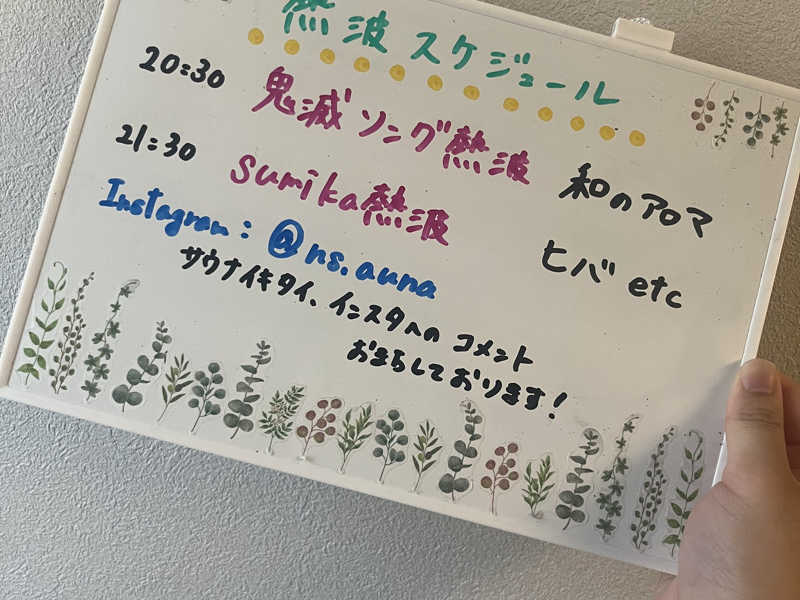 熱波 スケジュール
20:30 鬼滅ソング熱波 和のアロマ
21:30 sumika熱波 ヒバ etc
Instagram: @ns.auna
サウナイキタイ、インスタへの コメント
おまちしております!